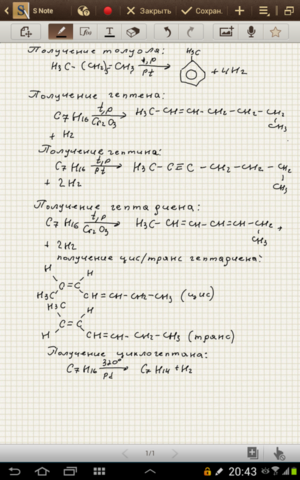 S Note
Закрыть
Сохран.
Получение толуола:
H3C-(CH2)5-CH3 t,p Pt → H3C + 4H2
Получение гептена:
C7H16 t,p Cr2O3 → H3C-CH=CH-CH2-CH2-CH2
CH3
+ H2
Получение гептина:
C7H16 t,p pt → H3C-C≡C-CH2-CH2-CH2
CH3
+ 2H2
Получение гепта диена:
C7H16 t,p Cr2O3 → H3C-CH=CH-CH=CH-CH2 +
CH3
+ 2H2
получение цис/транс гептадиена:
H H
C=C
H3C CH=CH-CH2-CH3 (цис)
H3C H
C=C
H CH=CH-CH2-CH3 (транс)
Получение циклогептана:
C7H16 320° pd → C7H14 + H2
1/1
20:43